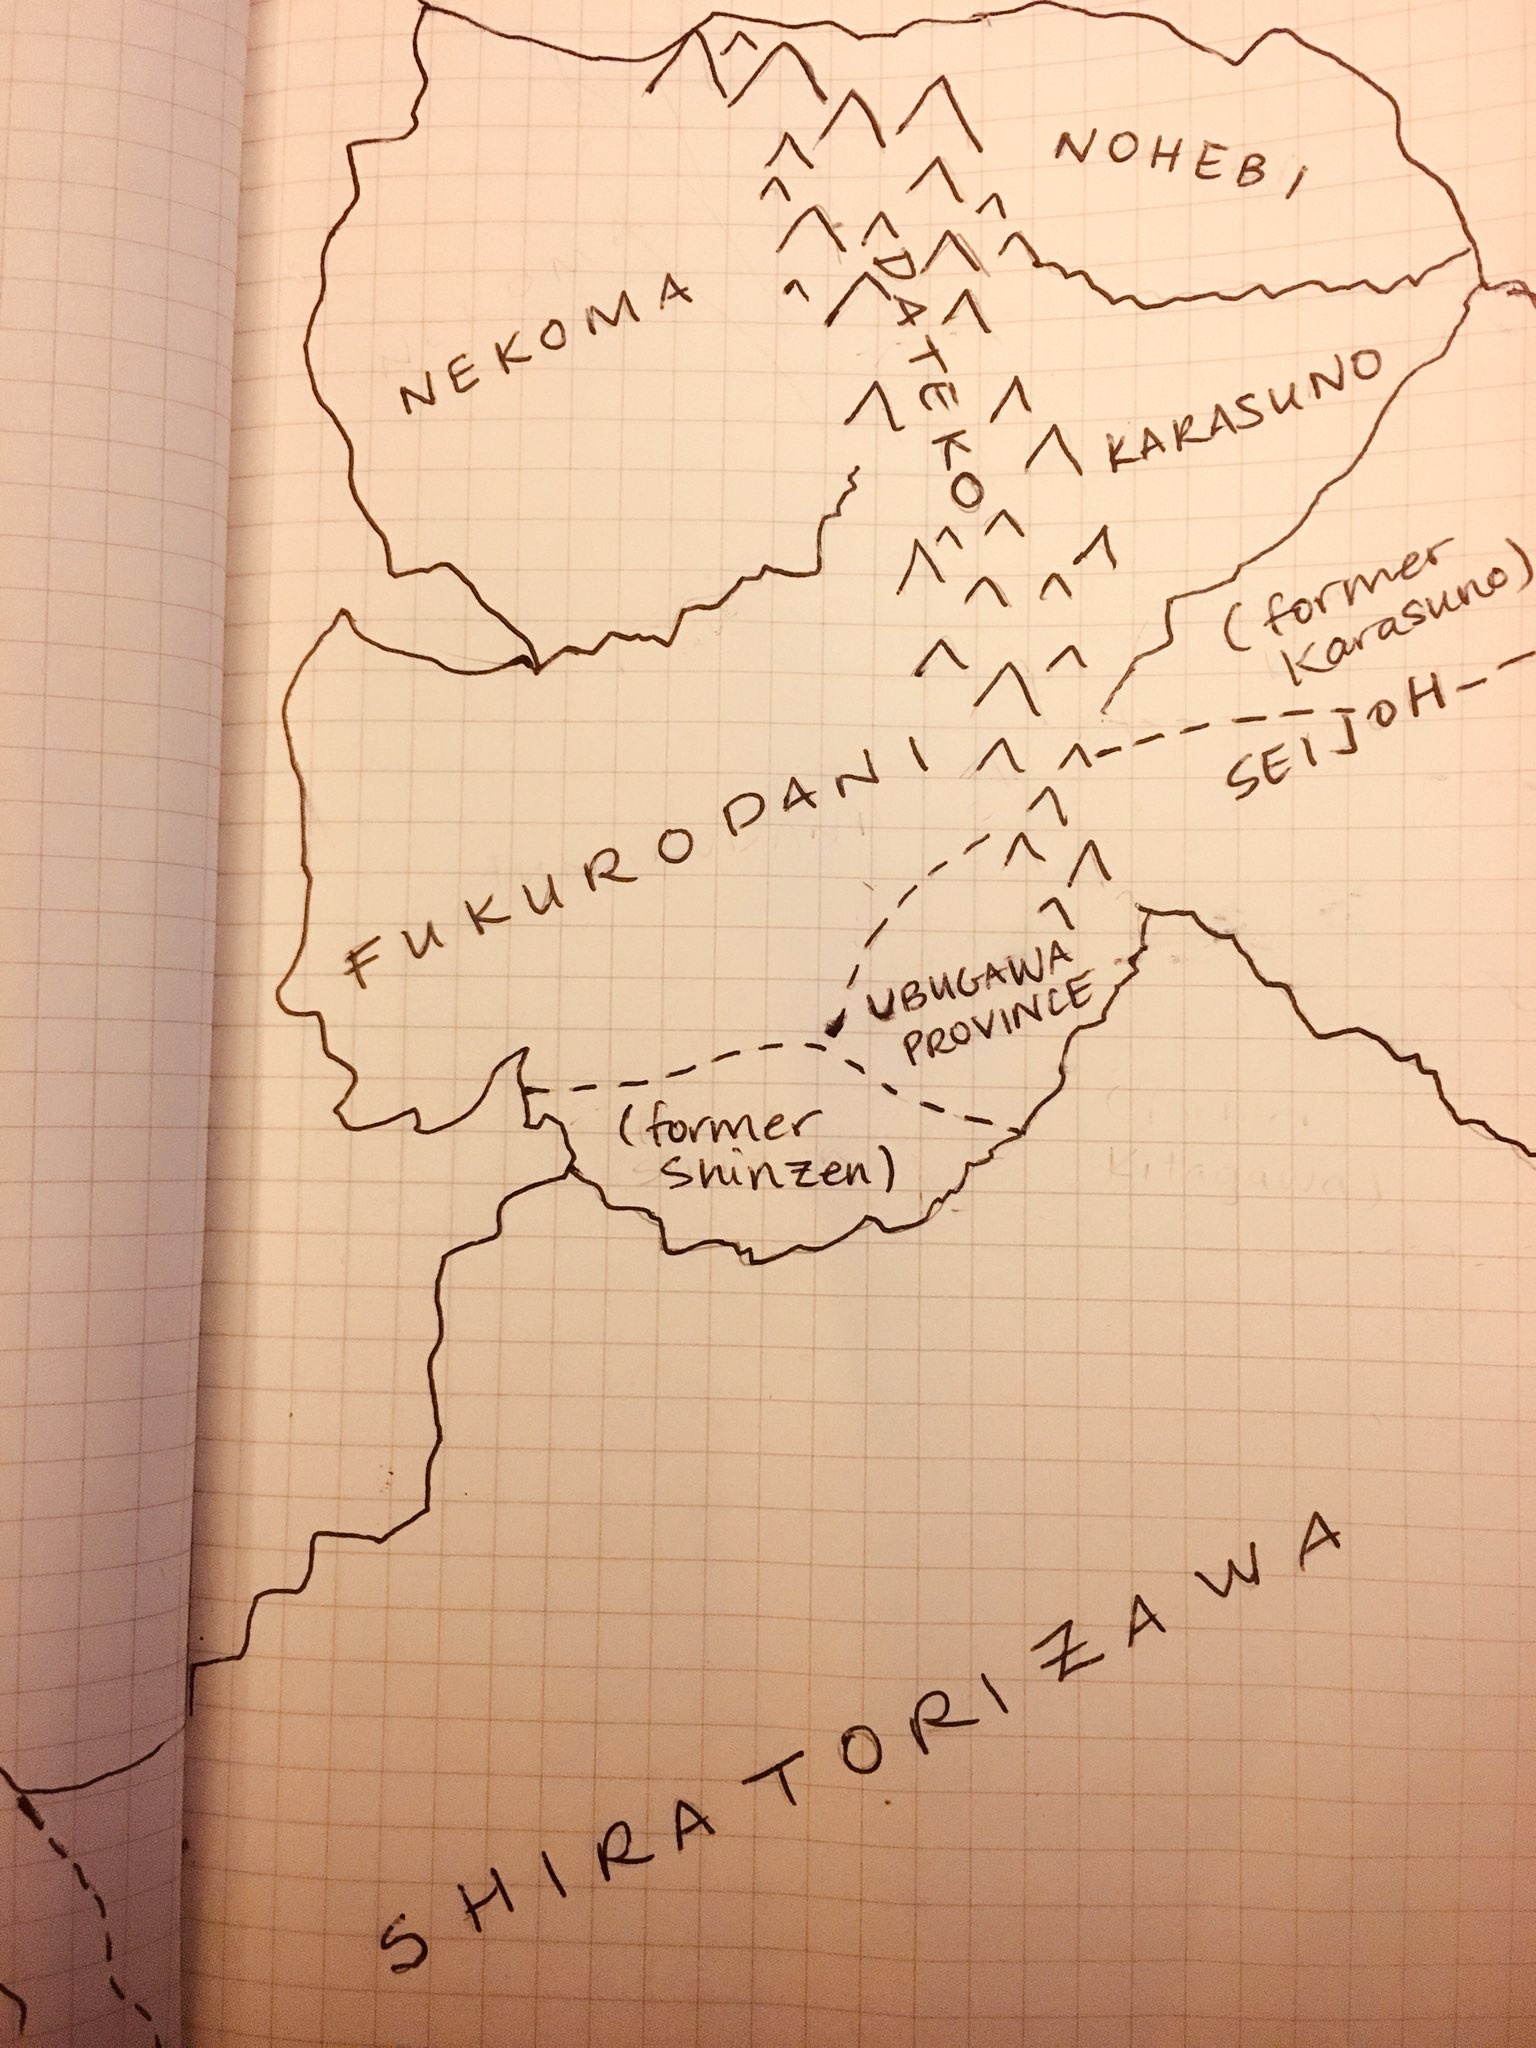 NOHEBI
NEKOMA
DATEKO
KARASUNO
(former
Karasuno)
SEIJOH
FUKURODANI
UBUGAWA
PROVINCE
(former
Shinzen)
SHIRATORIZAWA